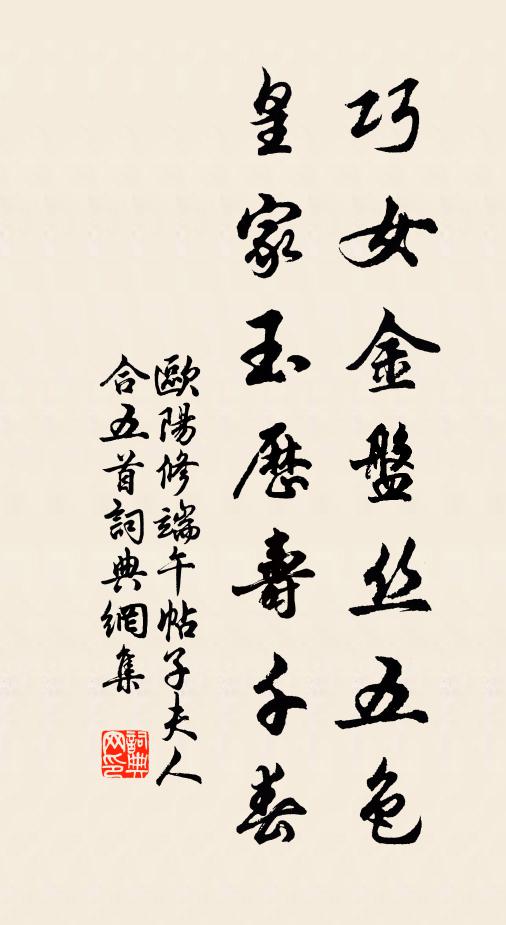 巧女金盤丝五色
皇家玉歷壽千春
歐陽修端午帖子夫人
合五首詞典網集
詞典
网印